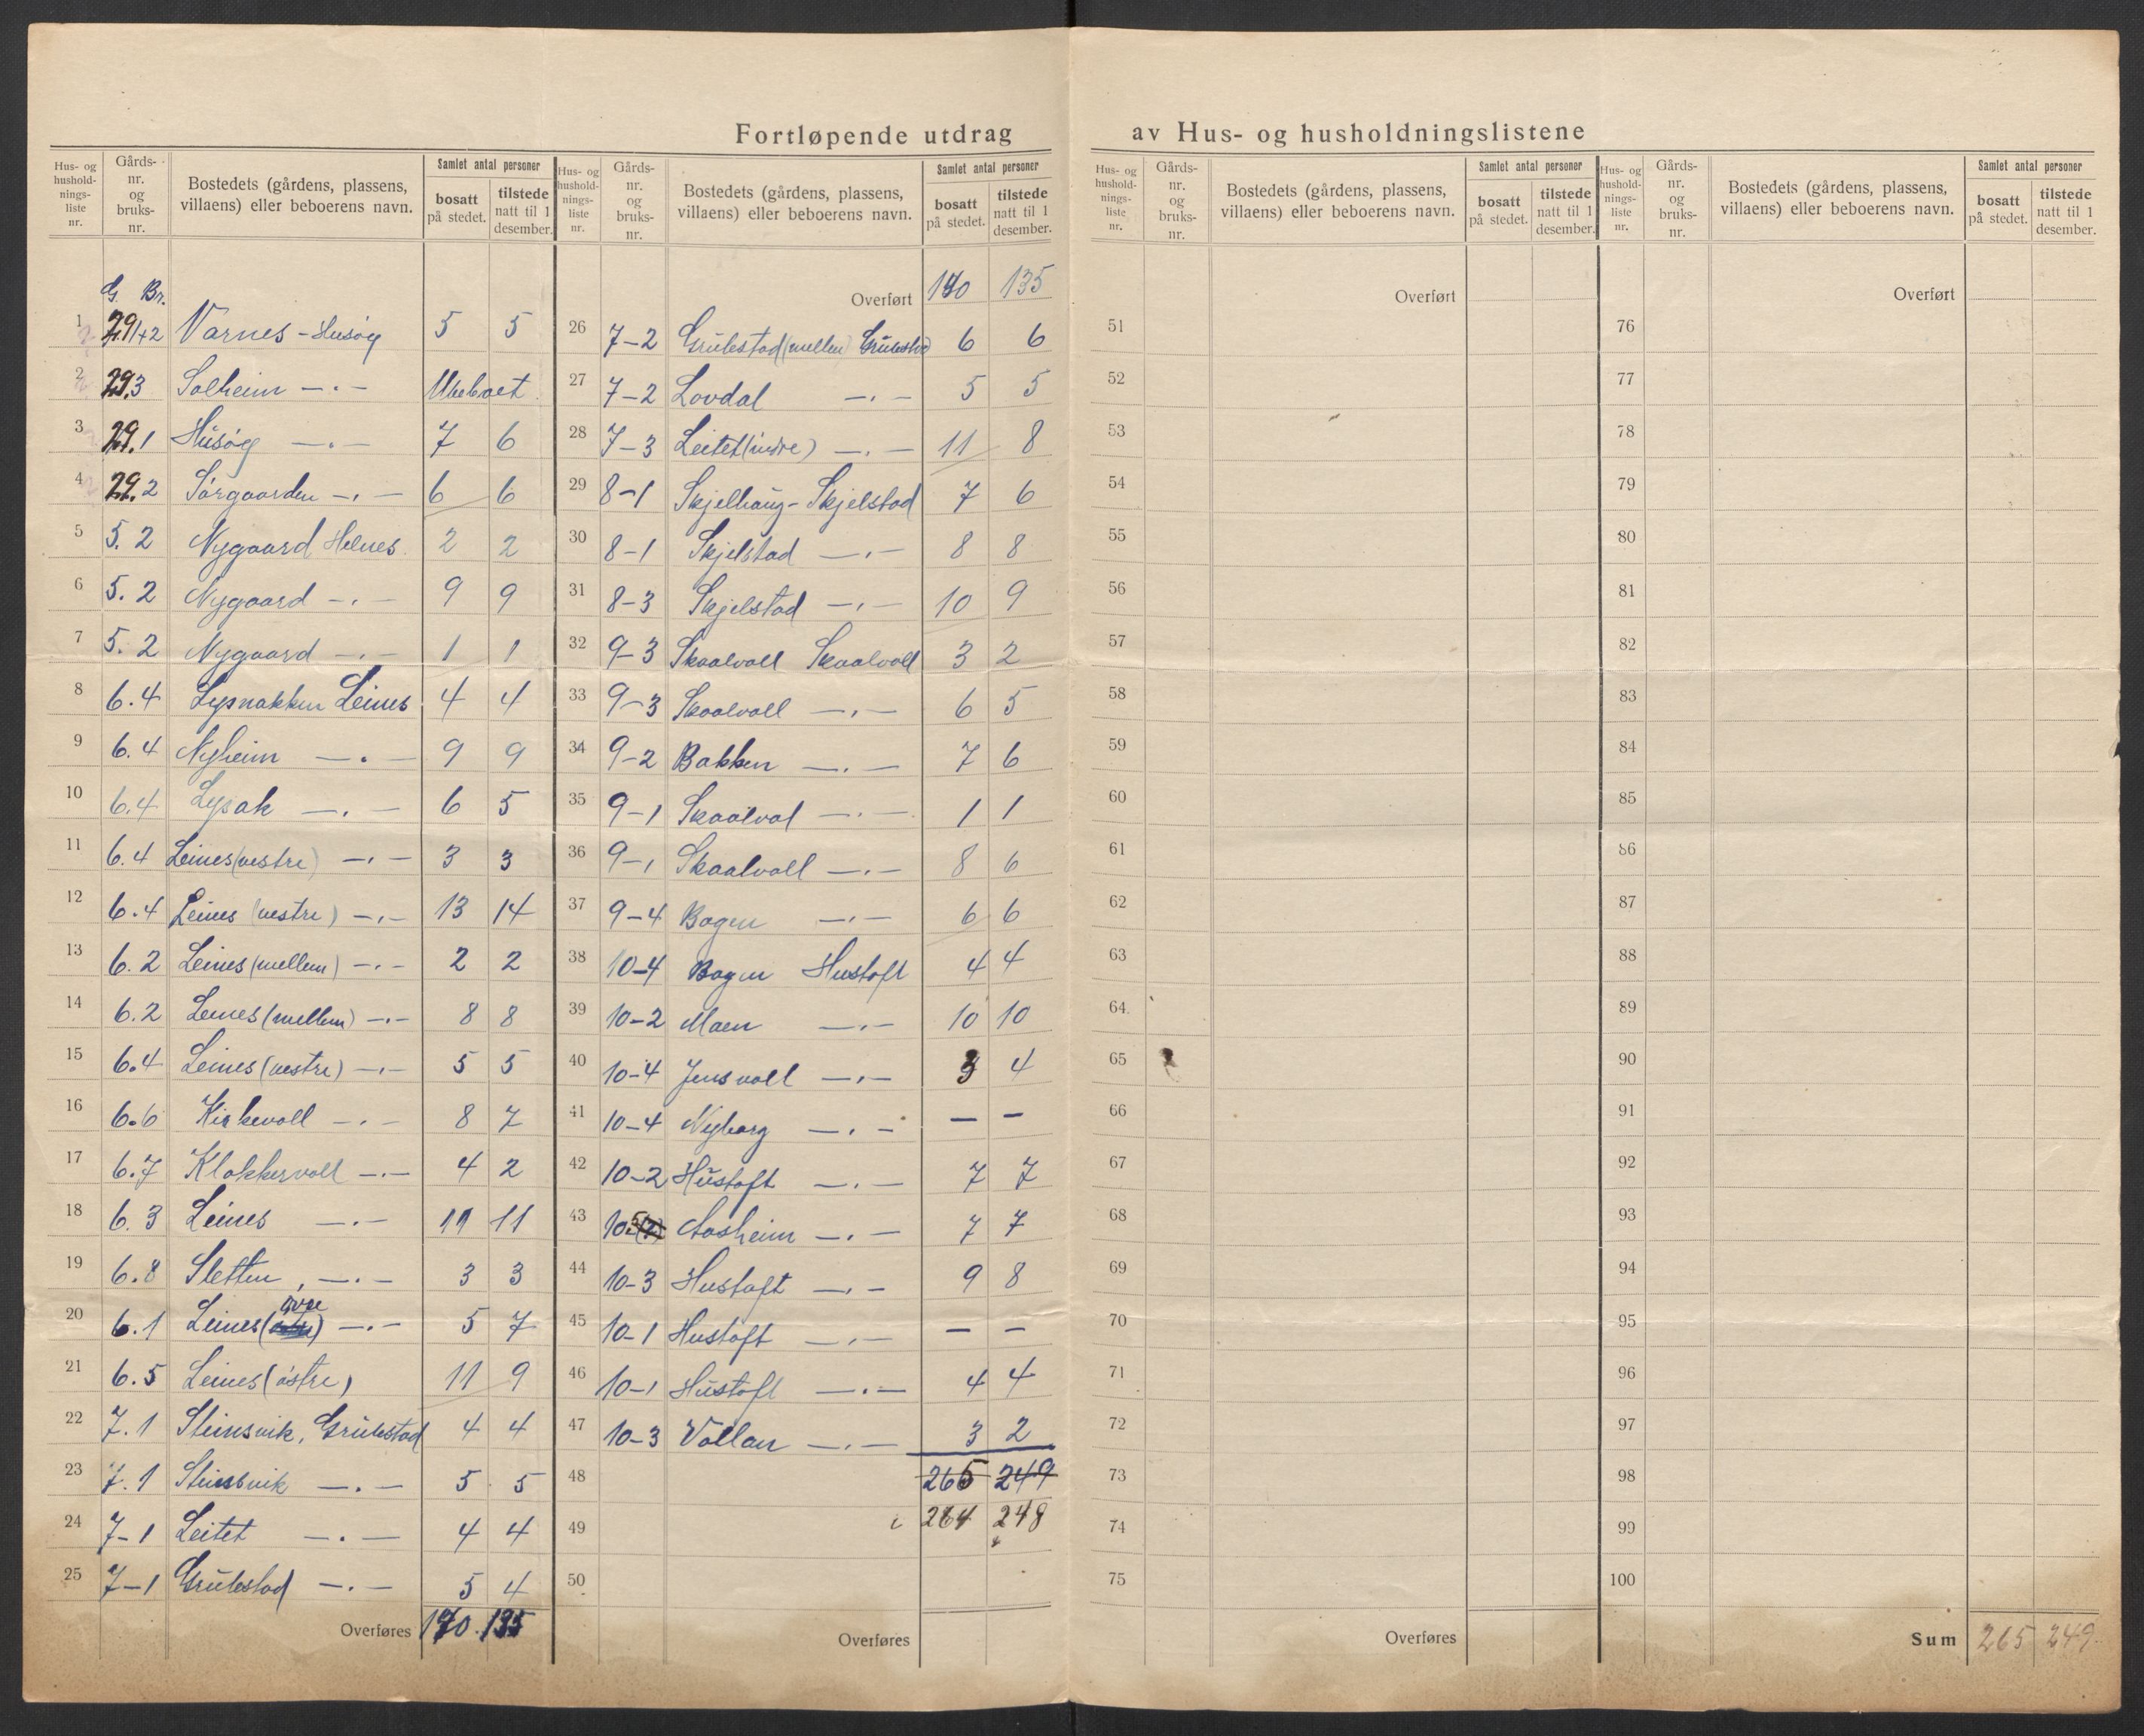 Fortløpende utdrag av Hus- og husholdningslistene
Hus- og husholdnings-liste nr. Gårds-nr. og bruks-nr. Bostedets (gårdens, plassens, villaens) eller beboerens navn. Samlet antal personer bosatt på stedet. tilstede natt til 1 desember.
G. Br.
1 29.1+2 Varnes - Husøy 5 5
2 29.3 Solheim —.— Ubeboet
3 29.1 Husøy —.— 7 6
4 29.2 Sørgaarden —.— 6 6
5 5.2 Nygaard Helnes 2 2
6 5.2 Nygaard —.— 9 9
7 5.2 Nygaard —.— 1 1
8 6.4 Lysnakken Leines 4 4
9 6.4 Nyheim —.— 9 9
10 6.4 Lysak —.— 6 5
11 6.4 Leines (vestre) —.— 3 3
12 6.4 Leines (vestre) —.— 13 14
13 6.2 Leines (mellem) —.— 2 2
14 6.2 Leines (mellem) —.— 8 8
15 6.4 Leines (vestre) —.— 5 5
16 6.6 Kirkevoll —.— 8 7
17 6.7 Klokkervoll —.— 4 2
18 6.3 Leines —.— 11 11
19 6.8 Sletten, —.— 3 3
20 6.1 Leines (øvre) —.— 5 7
21 6.5 Leines (østre) 11 9
22 7.1 Steinsvik, Grubestad 4 4
23 7.1 Steinsvik —.— 5 5
24 7-1 Leitet —.— 4 4
25 7-1 Grubestad —.— 5 4
Overføres 140 135
Hus- og husholdnings-liste nr. Gårds-nr. og bruks-nr. Bostedets (gårdens, plassens, villaens) eller beboerens navn. Samlet antal personer bosatt på stedet. tilstede natt til 1 desember.
Overført 140 135
26 7-2 Grubestad (mellem) Grubestad 6 6
27 7-2 Lovdal —.— 5 5
28 7-3 Leitet (indre) —.— 11 8
29 8-1 Skjelhaug - Skjelstad 7 6
30 8-1 Skjelstad —.— 8 8
31 8-3 Skjelstad —.— 10 9
32 9-3 Skaalvoll Skaalvoll 3 2
33 9-3 Skaalvoll —.— 6 5
34 9-2 Bakken —.— 7 6
35 9-1 Skaalvol —.— 1 1
36 9-1 Skaalvoll —.— 8 6
37 9-4 Bogen —.— 6 6
38 10-4 Bogen Hustoft 4 4
39 10-2 Moen —.— 10 10
40 10-4 Jensvoll —.— 3 4
41 10-4 Nyborg —.— — —
42 10-2 Hustoft —.— 7 7
43 10-5 Aasheim —.— 7 7
44 10-3 Hustoft —.— 9 8
45 10-1 Hustoft —.— — —
46 10-1 Hustoft —.— 4 4
47 10-3 Vollan —.— 3 2
48 265 249
49 264 248
50
Overføres
Hus- og husholdnings-liste nr. Gårds-nr. og bruks-nr. Bostedets (gårdens, plassens, villaens) eller beboerens navn. Samlet antal personer bosatt på stedet. tilstede natt til 1 desember.
Overført
51
52
53
54
55
56
57
58
59
60
61
62
63
64
65
66
67
68
69
70
71
72
73
74
75
Overføres
Hus- og husholdnings-liste nr. Gårds-nr. og bruks-nr. Bostedets (gårdens, plassens, villaens) eller beboerens navn. Samlet antal personer bosatt på stedet. tilstede natt til 1 desember.
Overført
76
77
78
79
80
81
82
83
84
85
86
87
88
89
90
91
92
93
94
95
96
97
98
99
100
Sum 265 249